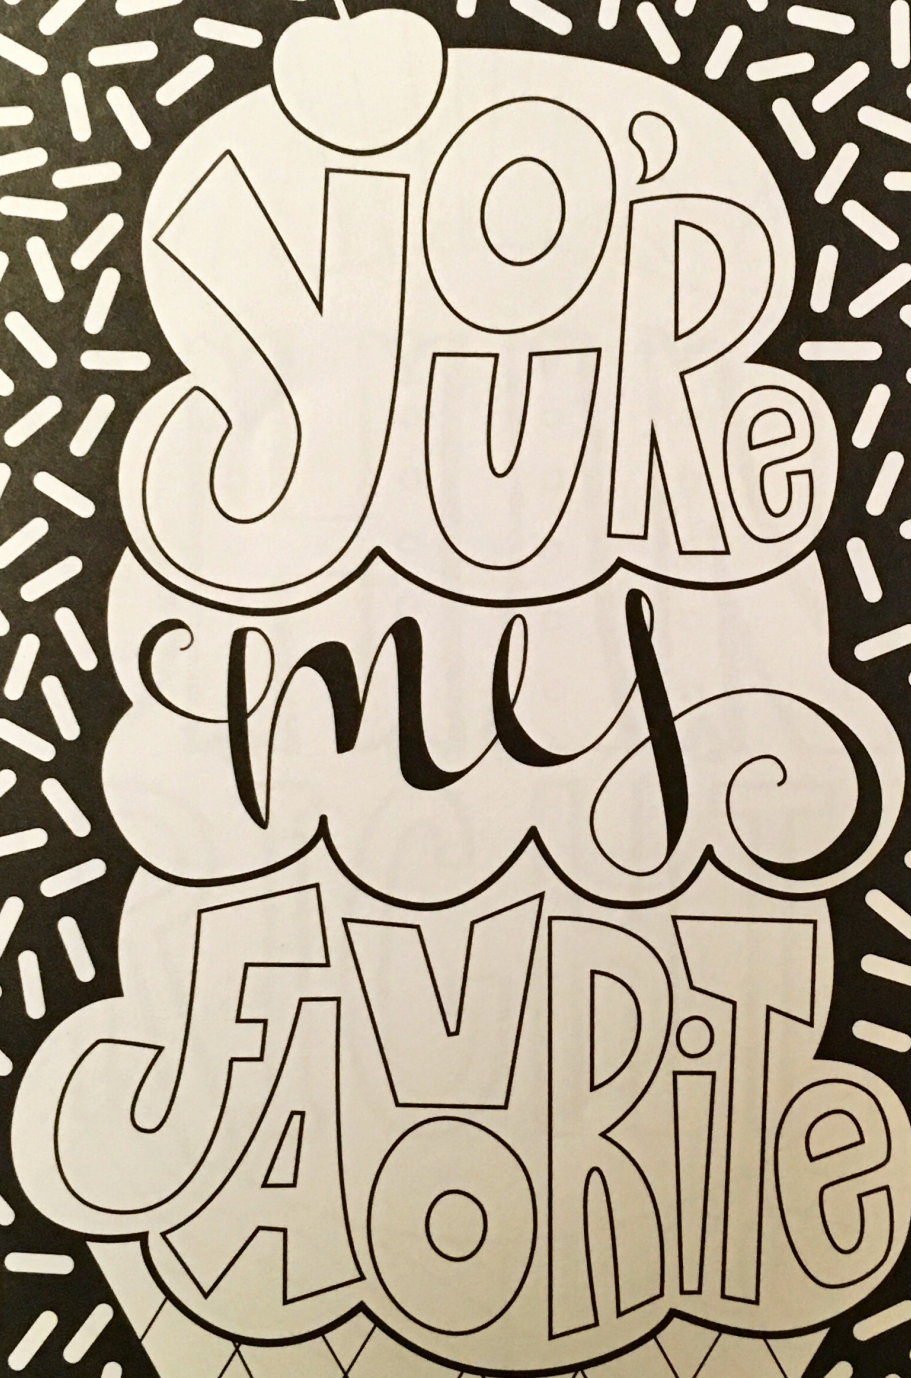 YOU'Re
my
FAVORiTe